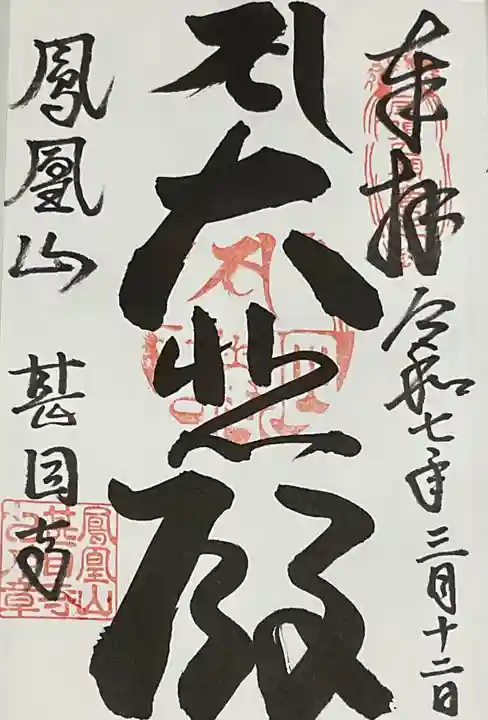 奉拝 令和七年三月十二日
大悲殿
鳳凰山 甚目寺
鳳凰山
甚目寺